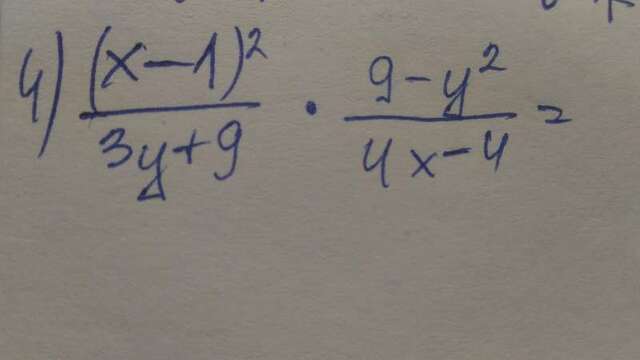 4) (x-1)²/(3y+9) · (9-y²)/(4x-4) =